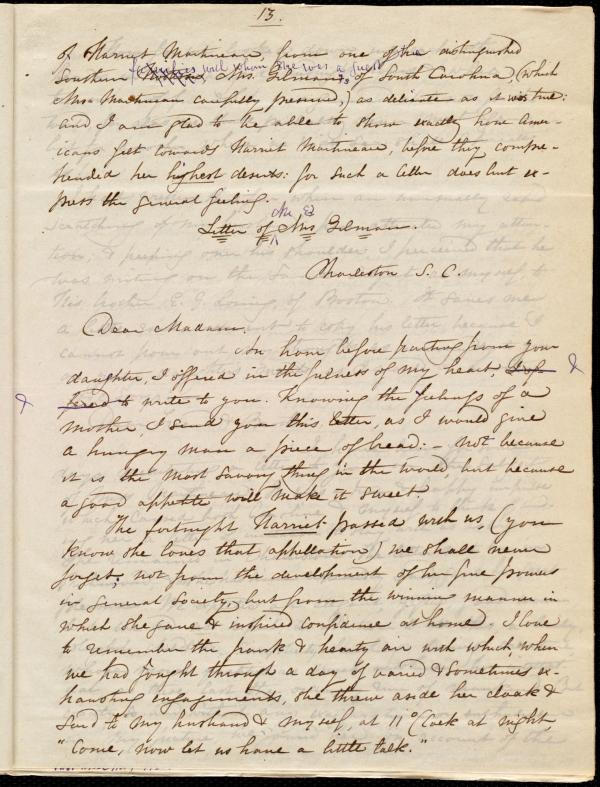 13.
of Harriet Martineau from one of the distinguished
families with whom she was a guest
Southern Mrs. Gilman, of South Carolina, (which
Mrs Martineau carefully preserved,) as delicate as it was true:
and I am glad to be able to show exactly how Amer-
icans felt towards Harriet Martineau, before they compre-
hended her highest deserts: for such a letter does but ex-
press the general feeling.
Letter of Mrs Gilman.
Charleston S. C.
Dear Madam,
An hour before parting from your
daughter, I offered in the fulness of my heart, &
& to write to you. Knowing the feelings of a
mother, I send you this letter, as I would give
a hungry man a piece of bread: – not because
it is the most savory thing in the world, but because
a good appetite will make it sweet.
The fortnight Harriet passed with us, (you
know she loves that appellation) we shall never
forget; not from the development of her fine powers
in general society, but from the winning manner in
which she gave & inspired confidence at home. I love
to remember the frank & hearty air with which, when
we had fought through a day of varied & sometimes ex-
hausting engagements, she threw aside her cloak &
said to my husband & myself, at 11 o'Clock at night,
"Come, now let us have a little talk."